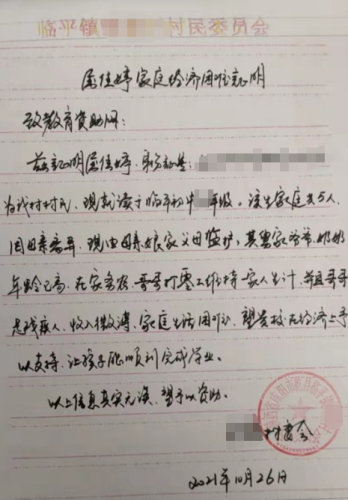 临平镇 村民委员会
佳婷家庭经济困难证明
致教育资助网：
兹证明 佳婷，身份证号：
为我村村民，现就读于临平初中 年级。该生家庭共5人，
因母亲离异，现由母亲娘家父母监护，其 家爷爷、奶奶
年龄已高，在家务农，哥哥打零工维持一家人生计，并且哥哥
是残疾人，收入微薄，家庭生活困难，望贵校在经济上予
以支持，让孩子能顺利完成学业。
以上信息真实无误，望予以资助。
村委会
2021年10月26日